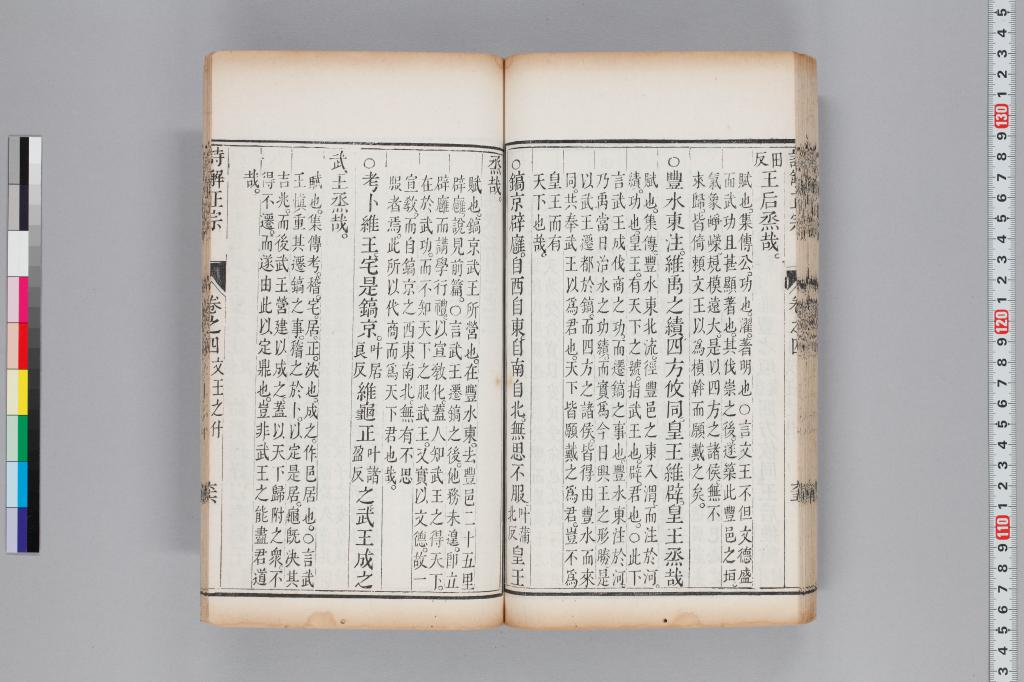 田反王后烝哉。
賦也。集傳公。功也。濯。著明也。○言文王不但文德盛
而武功且甚顯著也。其伐崇之後。遂築此豐邑之垣。
氣象崢嶸。規模遠大。是以四方之諸侯。無不
來歸。皆倚頼文王以爲楨幹而願戴之矣。
○豐水東注。維禹之績。四方攸同。皇王維辟。皇王烝哉
賦也。集傳豐水東北流。徑豐邑之東入渭而注於河。
績。功也。皇王。有天下之號。指武王也。辟。君也。○此下
言武王成伐商之功。而遷鎬之事也。豐水東注於河
乃禹當日治水之功績。而實爲今日興王之形勝。是
以武王遷都於鎬。而四方之諸侯。皆得由豐水而來
同。共奉武王以爲君也。天下皆願戴之爲君。豈不爲
皇王而有
天下也哉。
○鎬京辟廱。自西自東。自南自北。無思不服。叶蒲北反皇王
烝哉。
賦也。鎬京武王所營也。在豐水東。去豐邑二十五里
辟廱說見前篇。○言武王遷鎬之後。他務未遑。卽立
辟廱而講學行禮。以宣敎化。蓋人知武王之得天下。
在於武功。而不知天下之服武王。又實以文德。故一
宣敎。而自鎬京之西東南北。無有不思
服者焉。此所以代商而爲天下君也哉。
○考卜維王。宅是鎬京。叶居良反維龜正叶諸盈反之。武王成之
武王烝哉。
賦也。集傳考。稽。宅。居。正。决也。成之。作邑居也。○言武
王愼重其遷鎬之事。稽之於卜。以定是居。龜旣決其
吉兆。而後武王營建以成之。蓋以天下歸附之衆。不
得不遷。而遂由此以定鼎也。豈非武王之能盡君道
哉。
詩解正宗
卷之四
文王之什